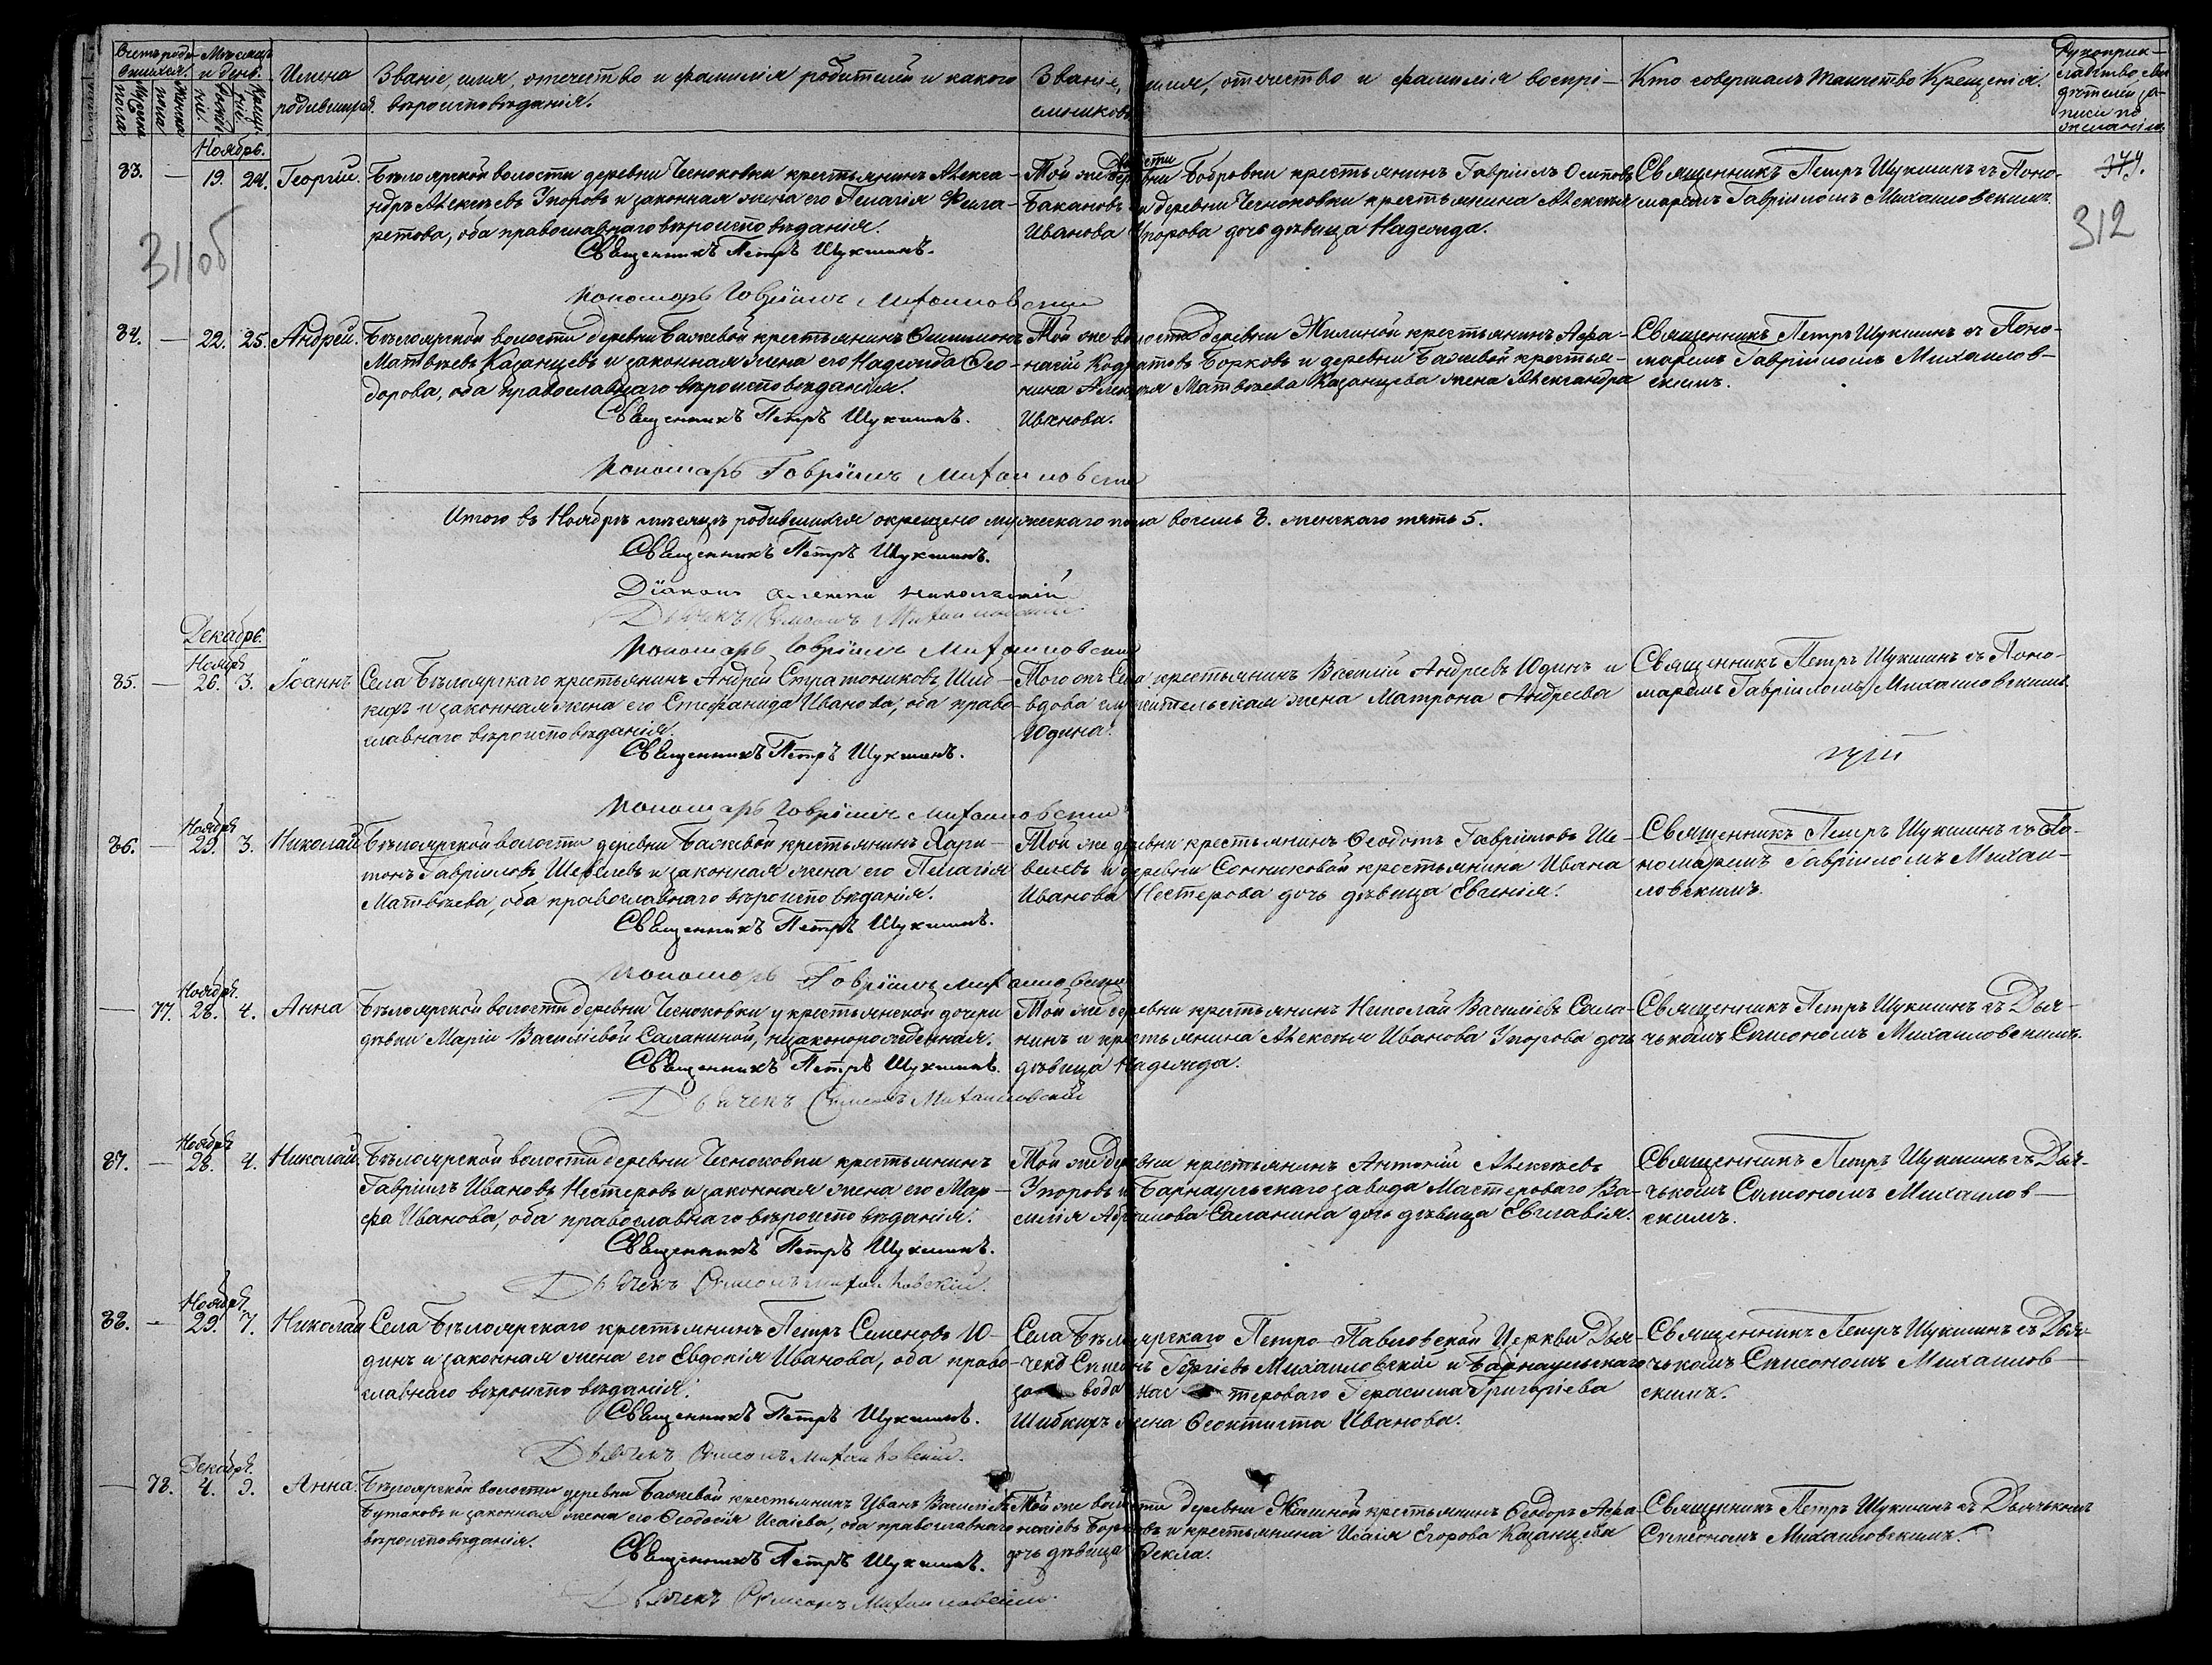 Счетъ роди-
вшихся.
Мужеска
пола
Женска
пола
Мѣсяцъ
и день.
Рожде-
нія.
Креще-
нія.
Имена
родившихся.
Званіе, имя, отечество и фамилія родителей и какого
вѣроисповѣданія.
Званіе, имя, отечество и фамилія воспрі-
емниковъ
Кто совершалъ таинство Крещенія.
Рукоприк-
ладство сви-
дѣтелей за-
писи по
желанію.
Ноябрь.
83. — 19. 24. Георгій.
Бѣлоярской волости деревни Чесноковки крестьянинъ Алекса-
ндръ Алексѣевъ Упоровъ и законная жена его Пелагія Фила-
ретова, оба православнаго вѣроисповѣданія.
Священникъ Петръ Шукшинъ.
Пономарь Гавріилъ Михаиловскій
Той же волости
деревни Бобровки крестьянинъ Гавріилъ Осиповъ
Бакановъ и деревни Чесноковки крестьянина Алексѣя
Иванова Упорова дочь дѣвица Надежда.
Священникъ Петръ Шукшинъ съ Поно-
маремъ Гавріиломъ Михаиловскимъ.
379.
311об
312
84. — 22. 25. Андрей.
Бѣлоярской волости деревни Бажевой крестьянинъ Филимонъ
Матвѣевъ Казанцевъ и законная жена его Надежда Ѳео-
дорова, оба православнаго вѣроисповѣданія.
Священникъ Петръ Шукшинъ.
Пономарь Гавріилъ Михаиловскій
Той же волости деревни Жилиной крестьянинъ Афа-
насій Кодратовъ Борковъ и деревни Бажевой крестья-
нина Алексѣя Матвѣева Казанцева жена Александра
Иванова.
Священникъ Петръ Шукшинъ съ Поно-
маремъ Гавріиломъ Михаилов-
скимъ.
Итого въ Ноябрѣ мѣсяцѣ родившихся окрещено мужескаго пола восемь 8. женскаго пять 5.
Священникъ Петръ Шукшинъ.
Діаконъ Алексѣй Никольскій
Дьячекъ Симеонъ Михаиловскій
Пономарь Гавріилъ Михаиловскій
Декабрь.
Ноября
85. — 26. 3. Іоаннъ
Села Бѣлоярскаго крестьянинъ Андрей Стратониковъ Шиб-
кихъ и законная жена его Стефанида Иванова, оба право-
славнаго вѣроисповѣданія.
Священникъ Петръ Шукшинъ.
Пономарь Гавріилъ Михаиловскій
Того жъ Села крестьянинъ Василій Андреевъ Юдинъ и
вдова служительская жена Матрона Андреева
Юдина.
Священникъ Петръ Шукшинъ съ Поно-
маремъ Гавріиломъ Михаиловскимъ
Ноября
86. — 29. 3. Николай
Бѣлоярской волости деревни Бажевой крестьянинъ Хари-
тонъ Гавріиловъ Шевелевъ и законная жена его Пелагія
Матвѣева, оба православнаго вѣроисповѣданія.
Священникъ Петръ Шукшинъ.
Пономарь Гавріилъ Михаиловскій
Той же деревни крестьянинъ Ѳеодотъ Гавріиловъ Ше-
велевъ и деревни Сонниковой крестьянина Ивана
Иванова Нестерова дочь дѣвица Евгенія.
Священникъ Петръ Шукшинъ съ По-
номаремъ Гавріиломъ Михаи-
ловскимъ.
Ноября.
— 77. 28. 4. Анна
Бѣлоярской волости деревни Чесноковки у крестьянской дочери
дѣвки Маріи Васильевой Саланиной, незаконорожденная.
Священникъ Петръ Шукшинъ.
Дьячекъ Симеонъ Михаиловскій
Той же деревни крестьянинъ Николай Васильевъ Сала-
нинъ и крестьянина Алексѣя Иванова Упорова дочь
дѣвица Надежда.
Священникъ Петръ Шукшинъ съ Дья-
чькомъ Симеономъ Михаиловскимъ.
Ноября
87. — 28. 4. Николай.
Бѣлоярской волости деревни Чесноковки крестьянинъ
Гавріилъ Ивановъ Нестеровъ и законная жена его Мар-
фа Иванова, оба православнаго вѣроисповѣданія.
Священникъ Петръ Шукшинъ.
Дьячекъ Симеонъ Михаиловскій.
Той же деревни крестьянинъ Антоній Алексѣевъ
Упоровъ и Барнаульскаго завода Мастероваго Ва-
силія Абрамова Саланина дочь дѣвица Евпавія.
Священникъ Петръ Шукшинъ съ Дья-
чькомъ Симеономъ Михаилов-
скимъ.
Ноября.
88. — 29. 7. Николай
Села Бѣлоярскаго крестьянинъ Петръ Семеновъ Ю-
динъ и законная жена его Евдокія Иванова, оба право-
славнаго вѣроисповѣданія.
Священникъ Петръ Шукшинъ.
Дьячекъ Симеонъ Михаиловскій.
Села Бѣлоярскаго Петро-Павловской Церкви Дья-
чекъ Симеонъ Георгіевъ Михаиловскій и Барнаульскаго
завода мастероваго Герасима Григоріева
Шибкихъ жена Ѳеоктиста Иванова.
Священникъ Петръ Шукшинъ съ Дья-
чькомъ Симеономъ Михаилов-
скимъ.
Декабря.
— 78. 4. 9. Анна.
Бѣлоярской волости деревни Бажевой крестьянинъ Иванъ Васильевъ
Бутаковъ и законная жена его Ѳеодосія Исаіева, оба православнаго
вѣроисповѣданія.
Священникъ Петръ Шукшинъ.
Дьячекъ Симеонъ Михаиловскій.
Той же волости деревни Жилиной крестьянинъ Ѳеодоръ Афа-
насіевъ Борковъ и крестьянина Исаія Егорова Казанцева
дочь дѣвица Ѳекла.
Священникъ Петръ Шукшинъ съ Дьячькомъ
Симеономъ Михаиловскимъ.